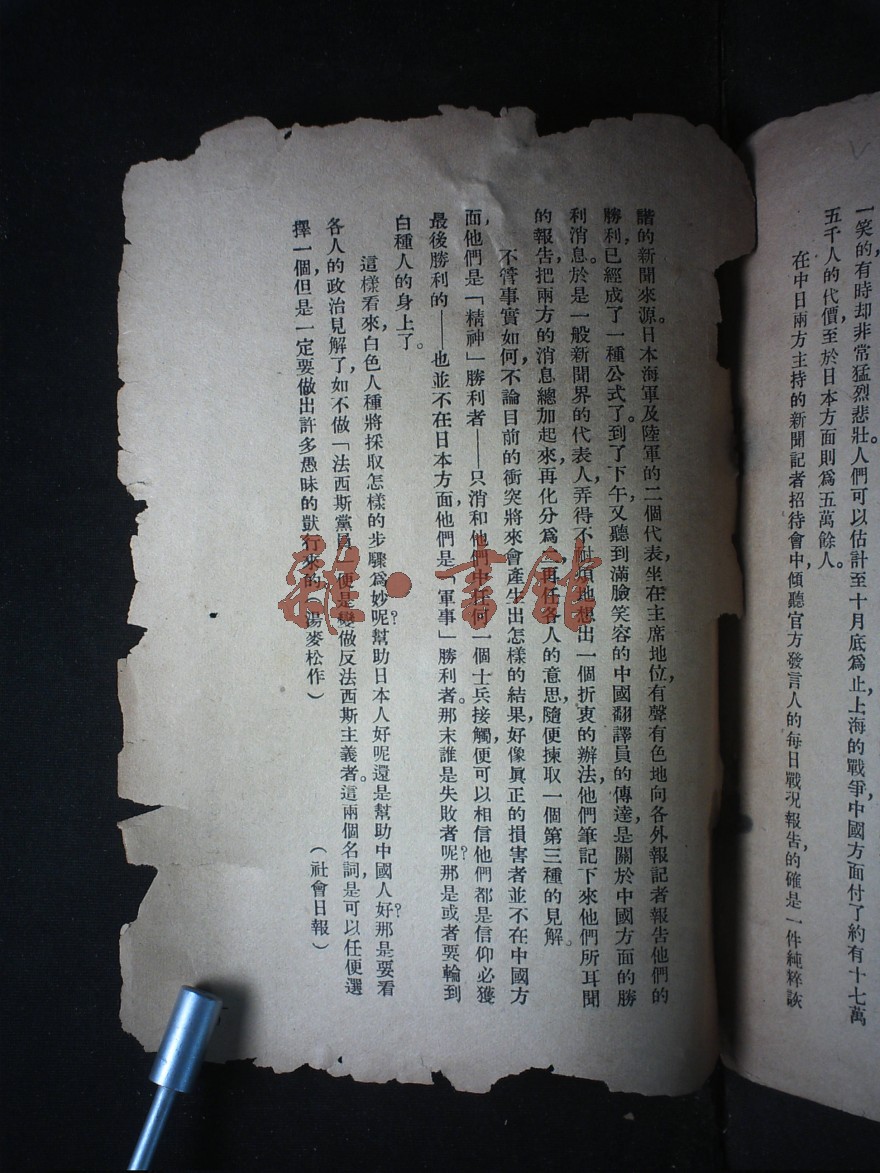 一笑的有時却非常猛烈悲壯。人們可以估計至十月底爲止,上海的戰爭,中國方面付了約有十七萬
五千人的代價,至於日本方面則爲五萬餘人。
在中日兩方主持的新聞記者招待會中,傾聽官方發言人的每日戰況報告,的確是一件純粹詼
諧的新聞來源。日本海軍及陸軍的二個代表,坐在主席地位,有聲有色地向各外報記者報告他們的
勝利,已經成了一種公式了。到了下午,又聽到滿臉笑容的中國翻譯員的傳達,是關於中國方面的勝
利消息。於是一般新聞界的代表人,弄得不耐煩地想出一個折衷的辦法,他們筆記下來他們所耳聞
的報告,把兩方的消息總加起來,再化分爲二,再任各人的意思,隨便揀取一個第三種的見解。
不管事實如何,不論目前的衝突將來會產生出怎樣的結果,好像眞正的損害者並不在中國方
面,他們是「精神」勝利者——只消和他們中任何一個士兵接觸,便可以相信他們都是信仰必獲
最後勝利的——也並不在日本方面,他們是「軍事」勝利者。那末誰是失敗者呢?那是或者要輪到
白種人的身上了。
這樣看來,白色人種將採取怎樣的步驟爲妙呢?幫助日本人好呢,還是幫助中國人好?那是要看
各人的政治見解了,如不做「法西斯黨員」便是變做反法西斯主義者。這兩個名詞,是可以任便選
擇一個,但是一定要做出許多愚昧的獃行來的。(湯麥松作)
(社會日報)
雜·書館